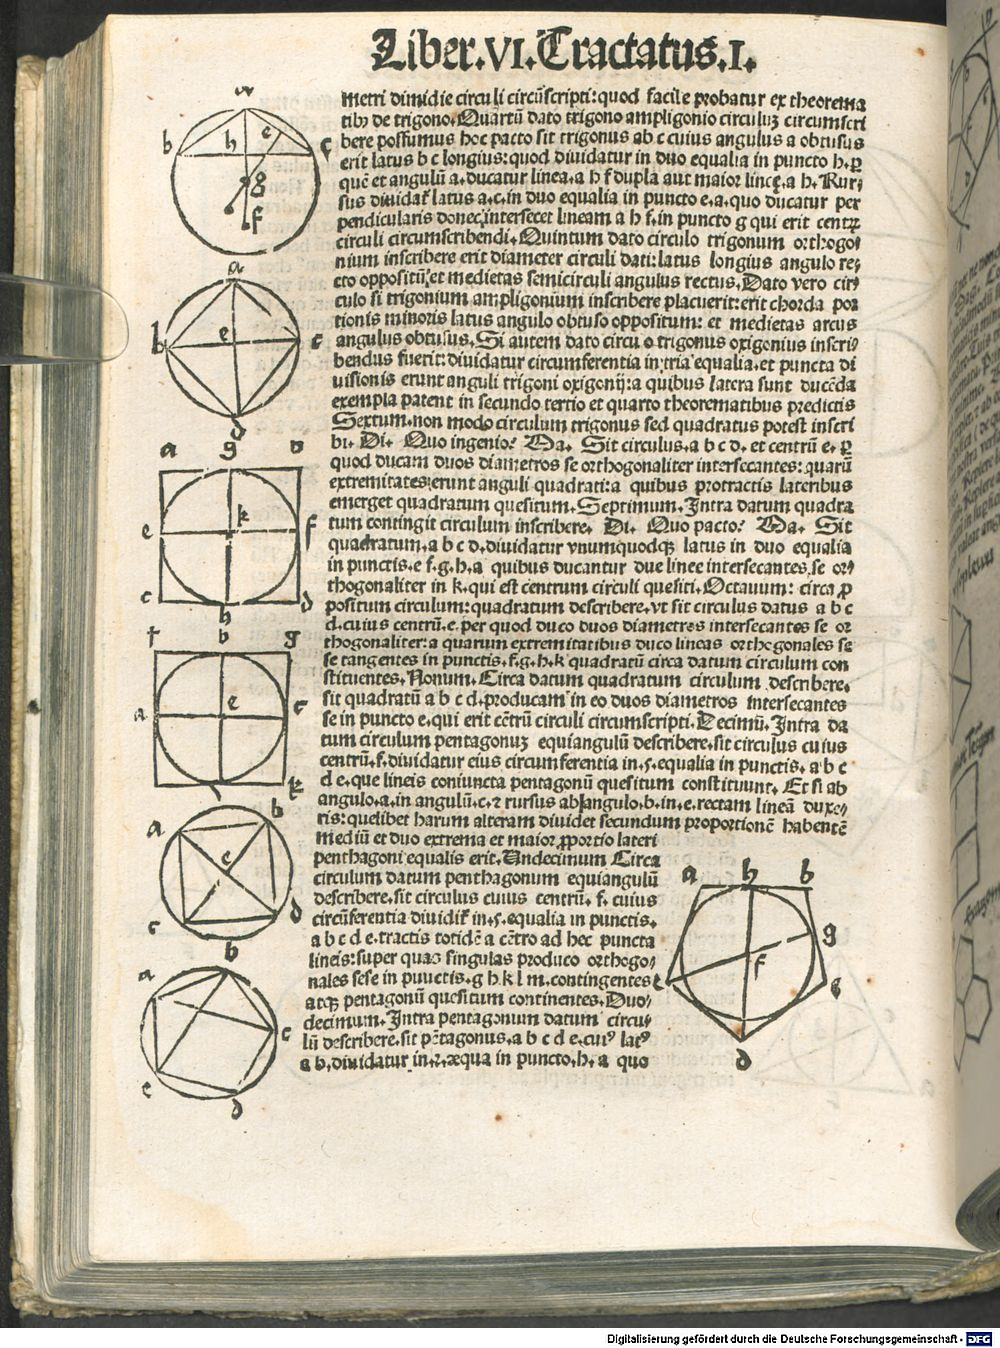 Liber.VI.Tractatus.I.
metri dimidie circuli circūscripti: quod facile probatur ex theorema
tibꝫ de trigono. Quartū dato trigono ampligonio circuluꝫ circumscri
bere possumus hoc pacto sit trigonus ab c cuius angulus a obtusus
erit latus b c longius: quod diuidatur in duo equalia in puncto h. ꝑ
quē et angulū a. ducatur linea. a h f dupla aut maior lineę. a h. Rur-
sus diuidat᷑ latus a. c. in duo equalia in puncto e. a. quo ducatur per
pendicularis donec intersecet lineam a h f. in puncto g qui erit centrꝝ
circuli circumscribendi. Quintum dato circulo trigonum orthogo-
nium inscribere erit diameter circuli dati: latus longius angulo re-
cto oppositū: et medietas semicirculi angulus rectus. Dato vero cir-
culo si trigonium ampligonium inscribere placuerit: erit chorda por
tionis minoris latus angulo obtuso oppositum: et medietas arcus
angulus obtusus. Si autem dato circu o trigonus oxigonius inscri-
bendus fuerit: diuidatur circumferentia in tria equalia. et puncta di
uisionis erunt anguli trigoni oxigonij: a quibus latera sunt ducēda
exempla patent in secundo tertio et quarto theorematibus predictis
Sextum. non modo circulum trigonus sed quadratus potest inscri
bi. Di. Quo ingenio? Ma. Sit circulus. a b c d. et centrū e. ꝑ
quod ducam duos diametros se orthogonaliter intersecantes: quarū
extremitates erunt anguli quadrati: a quibus protractis lateribus
emerget quadratum quesitum. Septimum. Intra datum quadra
tum contingit circulum inscribere. Di. Quo pacto? Ma. Sit
quadratum. a b c d. diuidatur vnumquodqꝫ latus in duo equalia
in punctis. e f. g. h. a quibus ducantur due linee intersecantes se or-
thogonaliter in k. qui est centrum circuli quesiti. Octauum: circa ꝓ
positum circulum: quadratum describere. vt sit circulus datus a b c
d. cuius centrū. e. per quod duco duos diametros intersecantes se or
thogonaliter: a quarum extremitatibus duco lineas orthogonales se
se tangentes in punctis. f. g. h. k quadratū circa datum circulum con
stituentes. Nonum. Circa datum quadratum circulum describere.
sit quadratū a b c d. producam in eo duos diametros intersecantes
se in puncto e. qui erit cētrū circuli circumscripti. Decimū. Intra da
tum circulum pentagonuꝫ equiangulū describere. sit circulus cuius
centrū. f. diuidatur eius circumferentia in. 5. equalia in punctis. a b c
d e. que lineis coniuncta pentagonū quesitum constituunt. Et si ab
angulo. a. in angulū. c. ⁊ rursus ab angulo. b. in. e. rectam lineā duxe-
ris: quelibet harum alteram diuidet secundum proportionē habentē
mediū et duo extrema et maior ꝓportio lateri
penthagoni equalis erit. Undecimum Circa
circulum datum penthagonum equiangulū
describere. sit circulus cuius centrū. f. cuius
circūferentia diuidit᷑ in. 5. equalia in punctis.
a b c d e. tractis totidē a cētro ad hec puncta
lineis: super quas singulas produco orthogo-
nales sese in punctis. g h k l m. contingentes
atqꝫ pentagonū quesitum continentes. Duo-
decimum. Intra pentagonum datum circu-
lū describere. sit pētagonus. a b c d e. cuiꝰ latꝰ
a b. diuidatur in. 2. æqua in puncto. h. a quo
a
b h e c
g
f
a
b e c
d
a g b
e k f
c h d
f b g
a e c
k
a b
e
c d
b
a
c
e d
a h b
g
f
e c
d
Digitalisierung gefördert durch die Deutsche Forschungsgemeinschaft - DFG